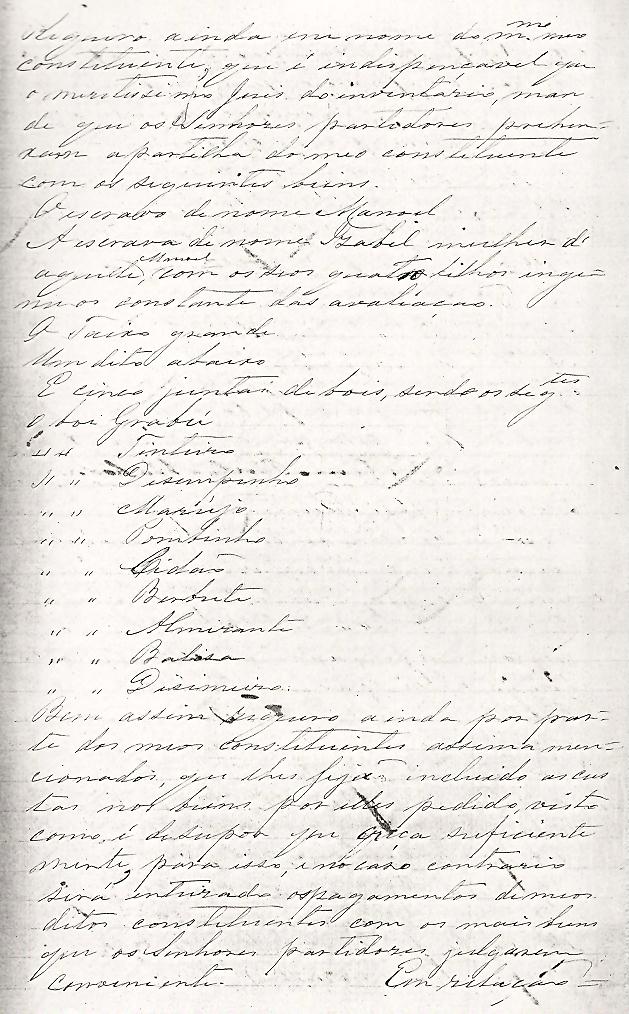 Requero ainda em nome do m.mo meo
constituente, que é indispençavel que
o meritissimo Juis do inventário, man
de que os Senhores partidores prehen-
xam a partilha do meo constituente
com os seguintes bens.
O escravo de nome Manoel
A escrava de nome Izabel mulher d'
aquelle, Manoel com os seos quatro filhos inge-
nuos constante das avaliacão.
O Taixo grande
Um dito abaixo
E cinco juntas de bois, sendo os seg.tes
O boi Grabú
" " Tinteiro
" " Disimpinho
" " Marujo
" " Pombinho
" " Cidão
" " Berbute
" " Almirante
" " Balisa
" " Disimeiro.
Bem assim requero ainda por par-
te dos meos constituentes assima men-
cionados, que lhes seja incluido as cus
tas nos bens por elles pedido, visto
como é desupor que creça suficiente
mente, para isso, e no caso contrario
será enteirado os pagamentos de meos
ditos constituentes com os mais bens
que os Senhores partidores julgarem
conveniente. Em relação